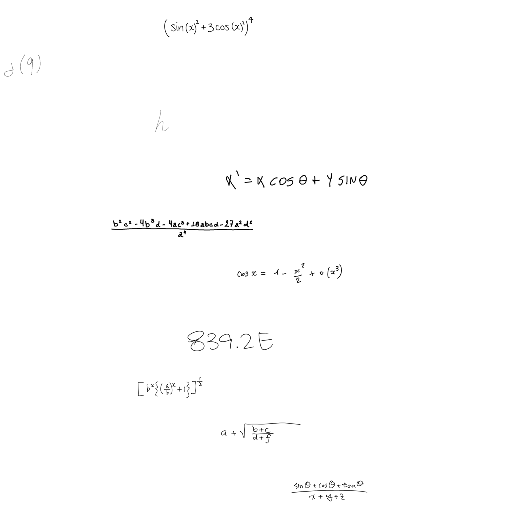 (sin(x)² + 3cos(x))⁴
d(9)
h
x' = x cos θ + y sin θ
(b²c² - 4b³d - 4ac³ + 18abcd - 27a²d²) / a⁴
cos x = 1 - x²/2 + o(x³)
839.2E
a + √((b+c)/(d+f))
(sin θ + cos θ + tan θ) / (x + y + z)